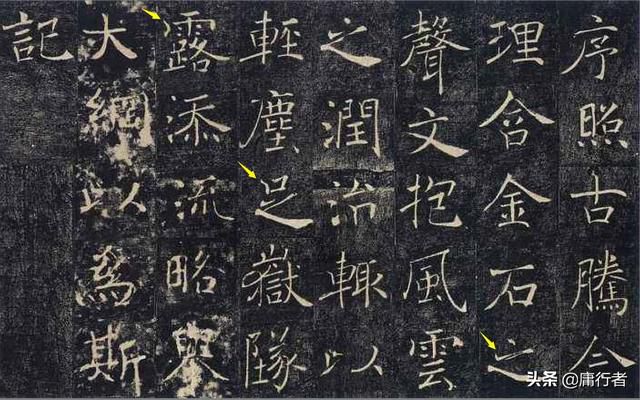 序照古騰今
理含金石之
聲文抱風雲
之潤治輒以
輕塵足嶽隊
露添流略舉
大綱以爲斯
記
头条 @庸行者